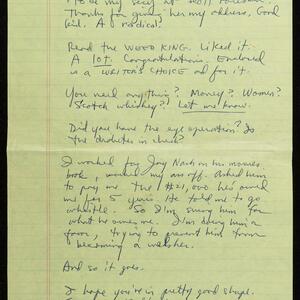 Thanks for giving her my address. Good
kid. A radical.
Read the WEED KING. Liked it.
A lot. Congratulations. Enclosed
is a WRITER'S CHOICE ad for it.
You need anything? Money? Women?
Scotch whiskey? Let me know.
Did you have the eye operation? Is
the diabetes in check?
I worked for Jay Nash on his movies
book, worked my ass off. Asked him
to pay me the $21,000 he's owed
me for 5 years. He told me to go
whistle. So I'm suing him for
what he owes me. I'm doing him a
favor, trying to prevent him from
becoming a welsher.
And so it goes.
I hope you're in pretty good shape.